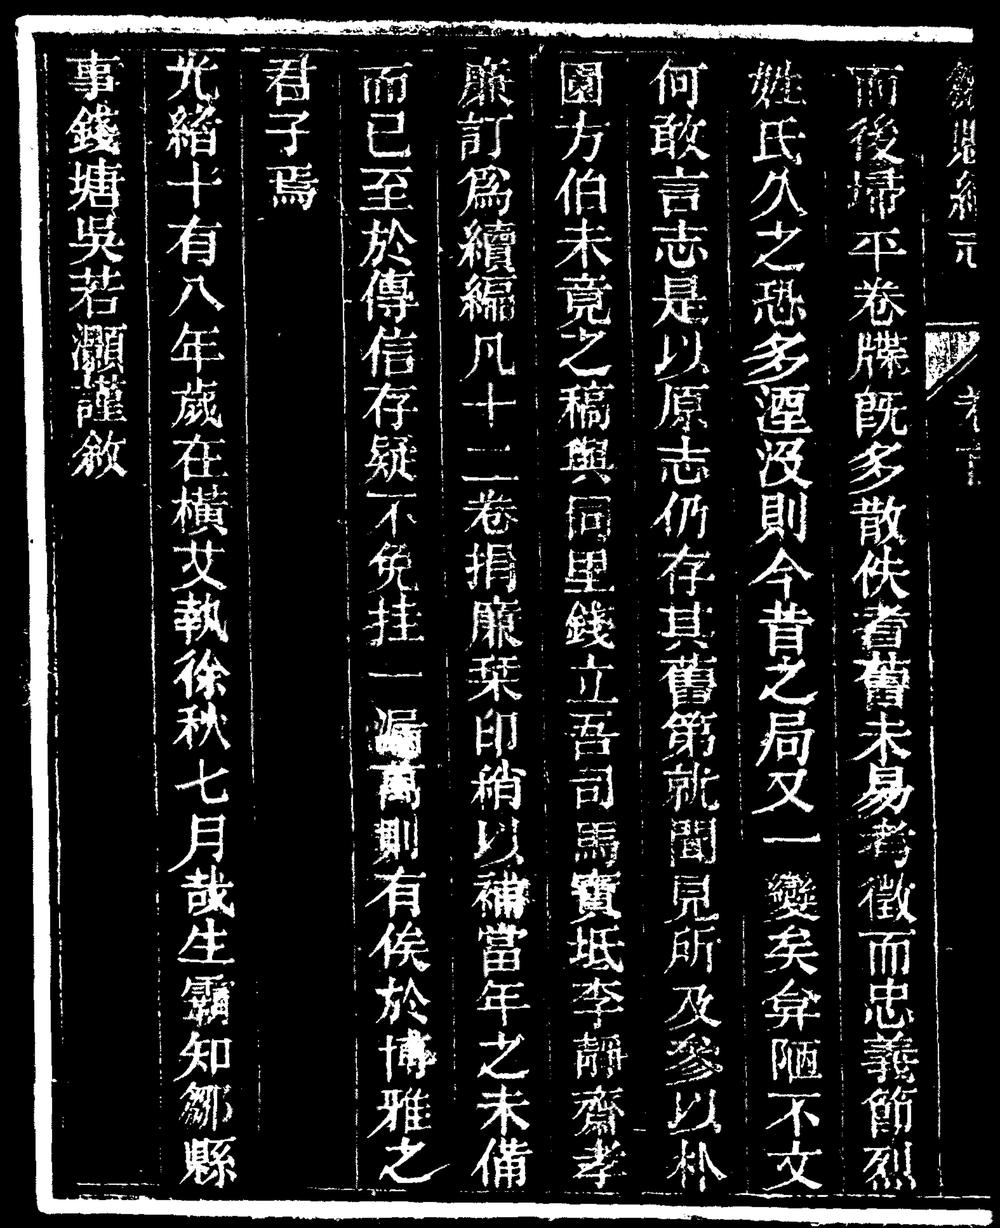 而後埽平卷牒既多散佚耆舊未易考徵而忠義節烈
姓氏久之恐多湮没則今昔之局又一變矣弇陋不文
何敢言志是以原志仍存其舊第就聞見所及參以朴
園方伯未竟之稿與同里錢立吾司馬寶坻李靜齋孝
廉訂爲續編凡十二卷捐廉栞印稍以補當年之未備
而已至於傳信存疑不免挂一漏萬則有俟於博雅之
君子焉
光緒十有八年歲在橫艾執徐秋七月哉生霸知鄒縣
事錢塘吳若灝謹敘